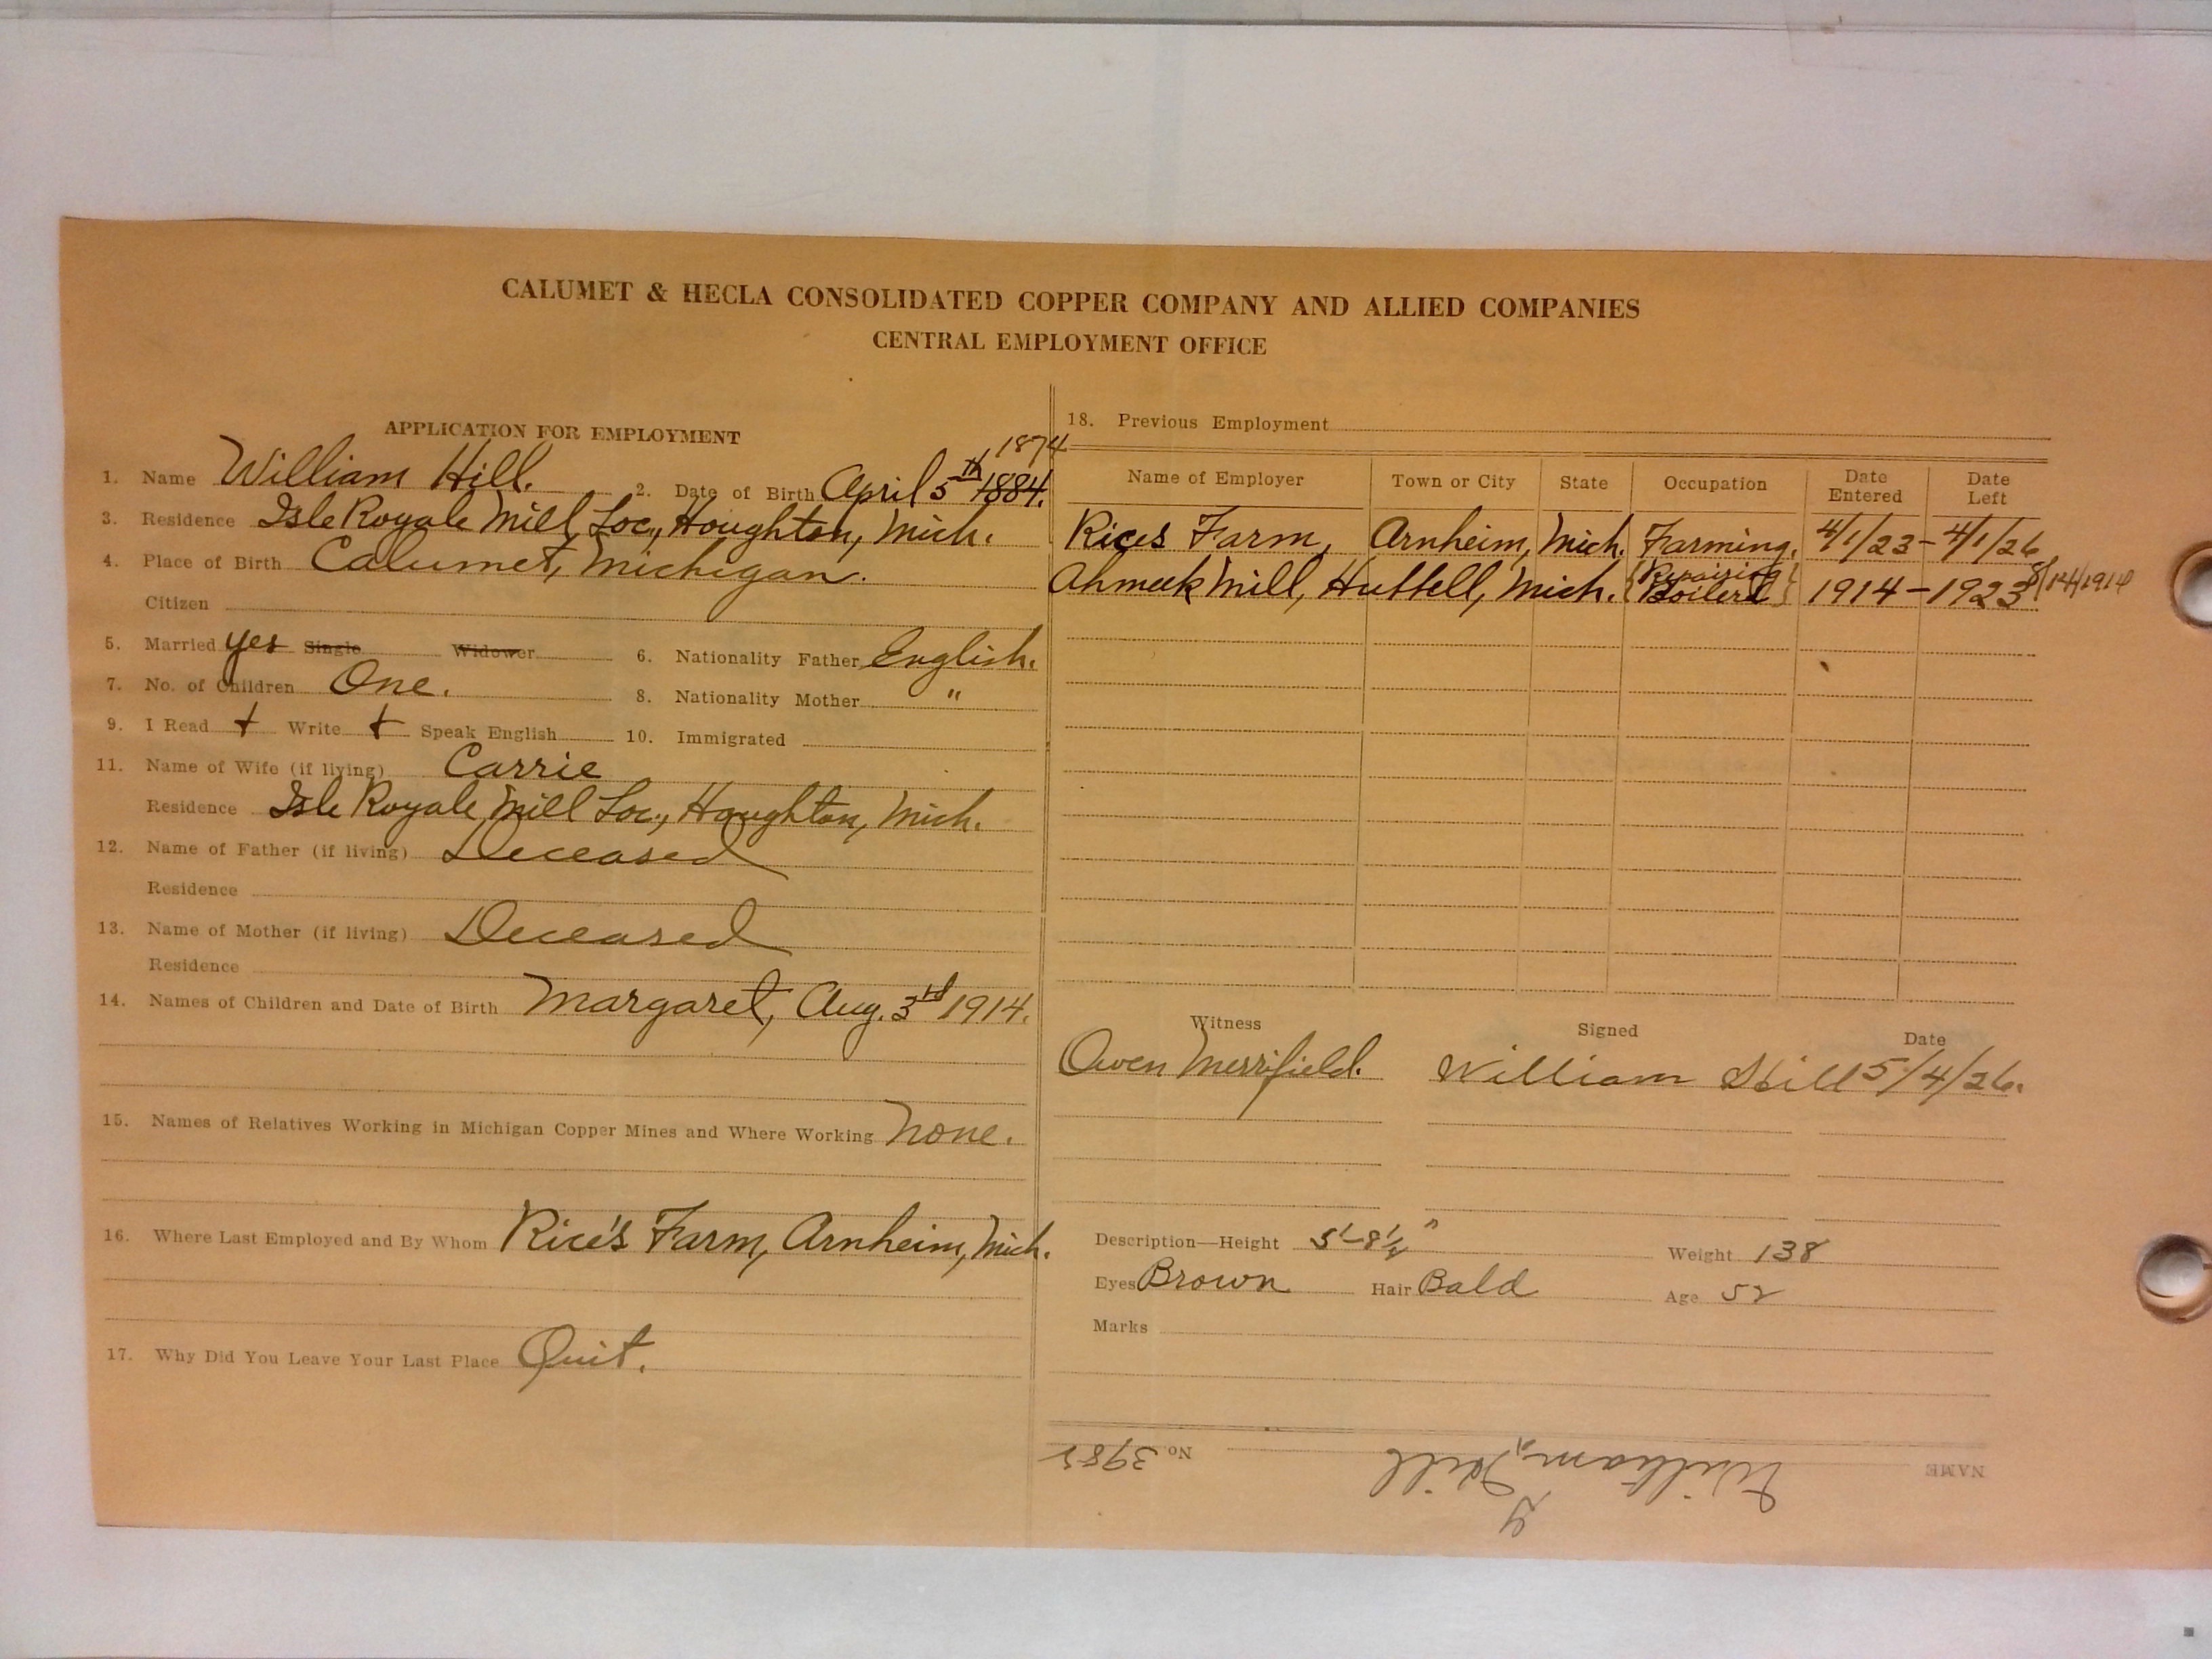 CALUMET & HECLA CONSOLIDATED COPPER COMPANY AND ALLIED COMPANIES
CENTRAL EMPLOYMENT OFFICE
APPLICATION FOR EMPLOYMENT
1874
1. Name William Hill. 2. Date of Birth April 5th 1884.
3. Residence Isle Royale Mill Loc., Houghton, Mich.
4. Place of Birth Calumet, Michigan.
Citizen
5. Married yes Single Widower 6. Nationality Father English.
7. No. of Children One. 8. Nationality Mother "
9. I Read + Write + Speak English 10. Immigrated
11. Name of Wife (if living) Carrie
Residence Isle Royale Mill Loc., Houghton, Mich.
12. Name of Father (if living) Deceased
Residence
13. Name of Mother (if living) Deceased
Residence
14. Names of Children and Date of Birth Margaret, Aug. 3rd 1914.
15. Names of Relatives Working in Michigan Copper Mines and Where Working None.
16. Where Last Employed and By Whom Rice's Farm, Arnheim, Mich.
17. Why Did You Leave Your Last Place Quit.
18. Previous Employment
Name of Employer Town or City State Occupation Date Entered Date Left
Rices Farm, Arnheim, Mich. Farming. 4/1/23 - 4/1/26
Ahmeek Mill, Hubbell, Mich. {Repairing Boilers} 1914 - 1923 8/14/1914
Witness Signed Date
Owen Merrifield. William Hill 5/4/26.
Description—Height 5'-8½" Weight 138
Eyes Brown Hair Bald Age 52
Marks
NAME William Hill No